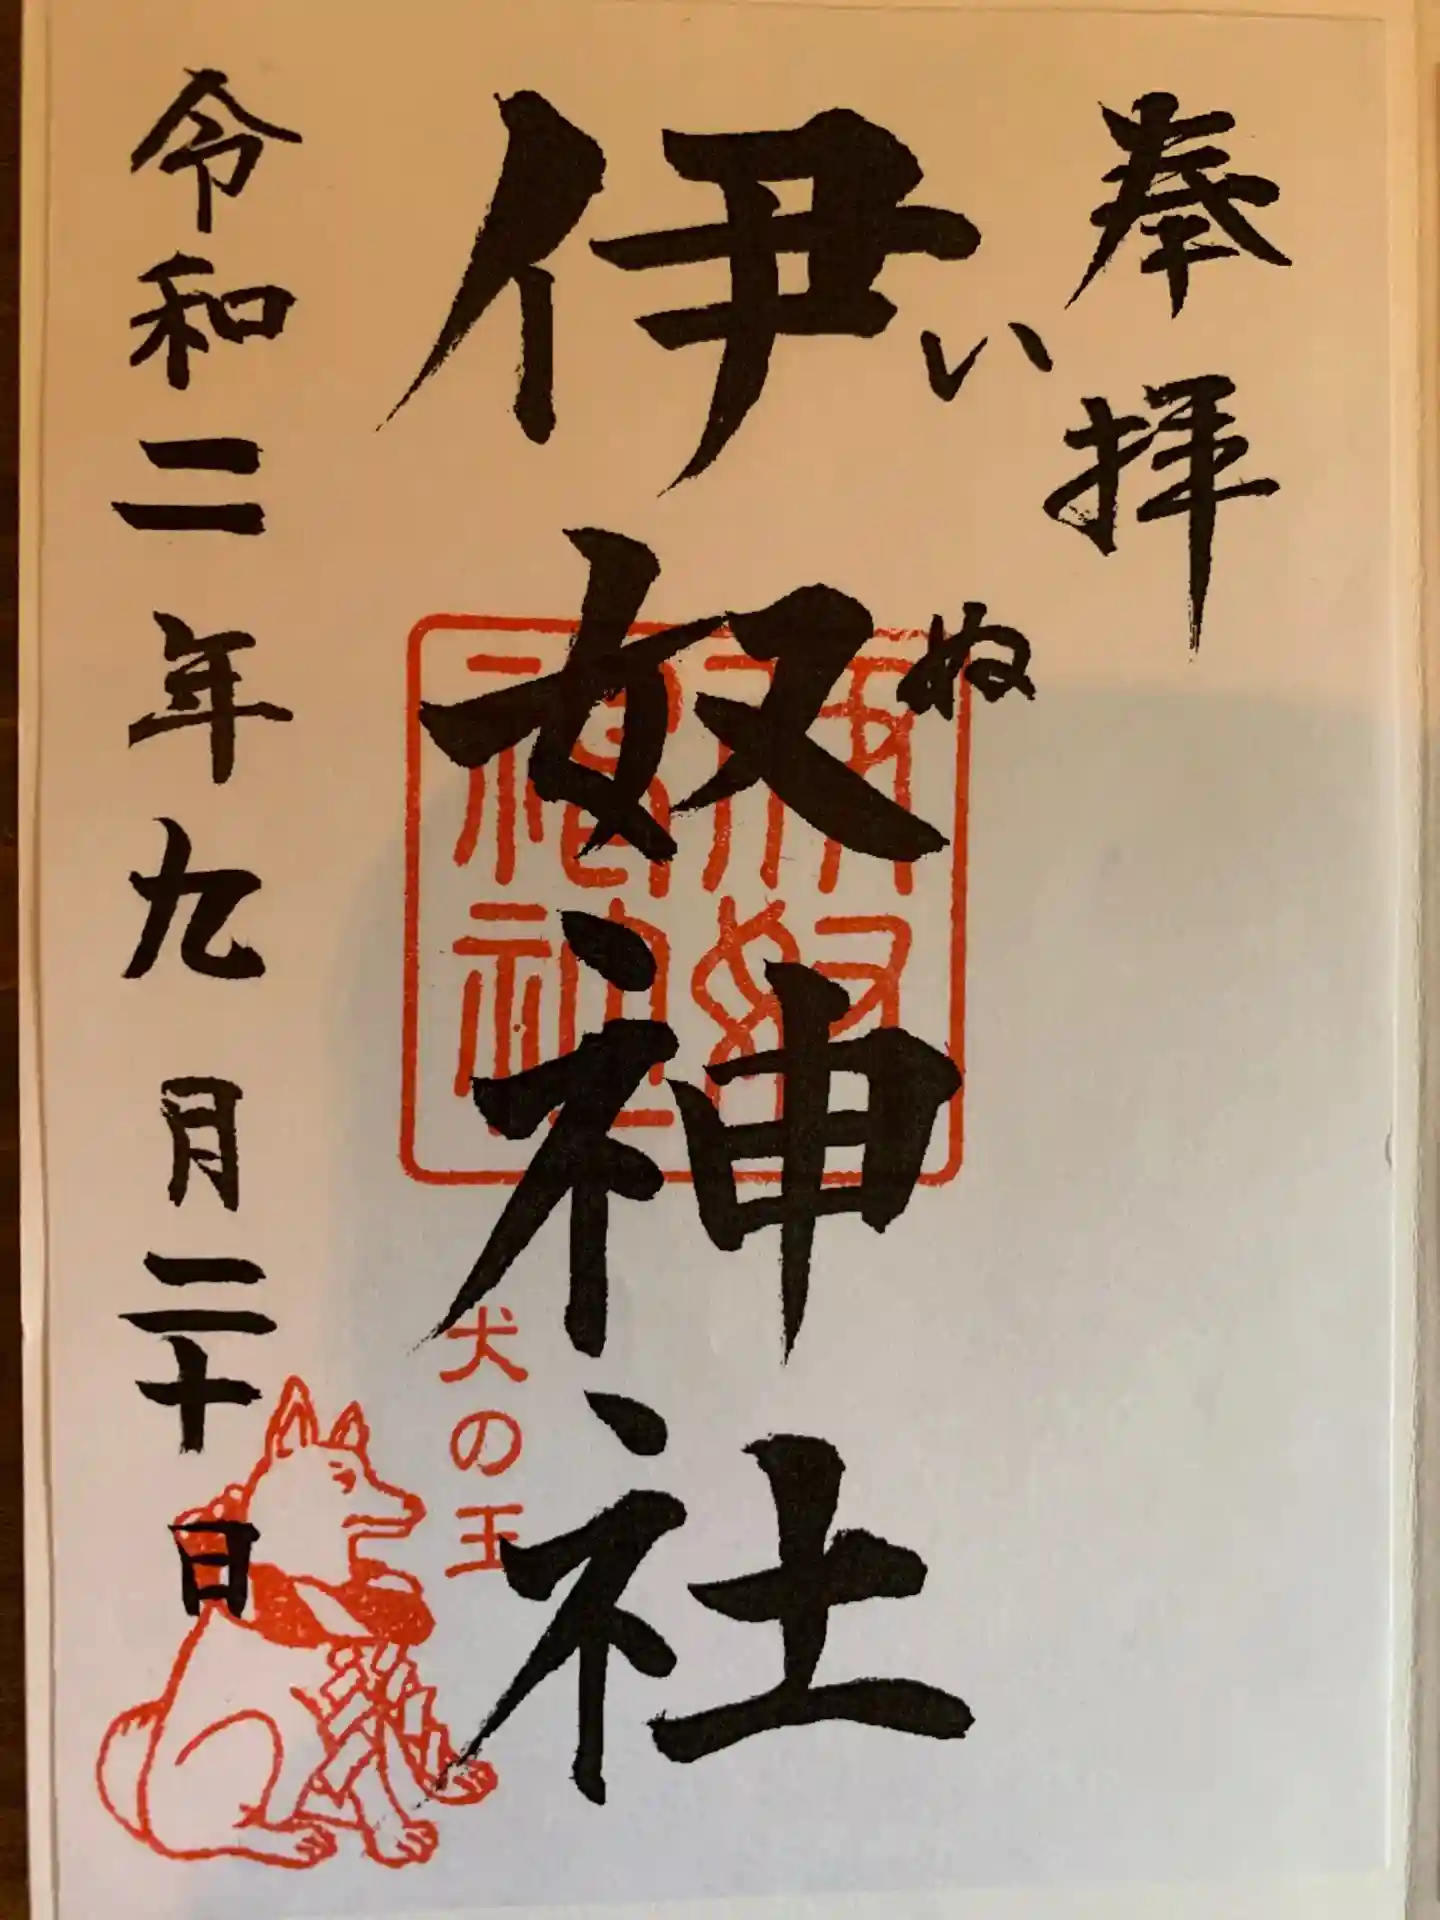 奉拝
いぬ
伊奴神社
伊奴
福社
犬の王
令和二年九月二十日